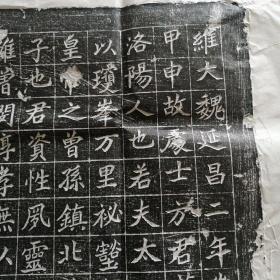 維大魏延昌二年
甲申故處士元君
洛陽人也若夫太
以瓊峯万里秘壑
皇帝之曾孫鎮北
子也君資性夙靈
雍曾閔淳孝無人